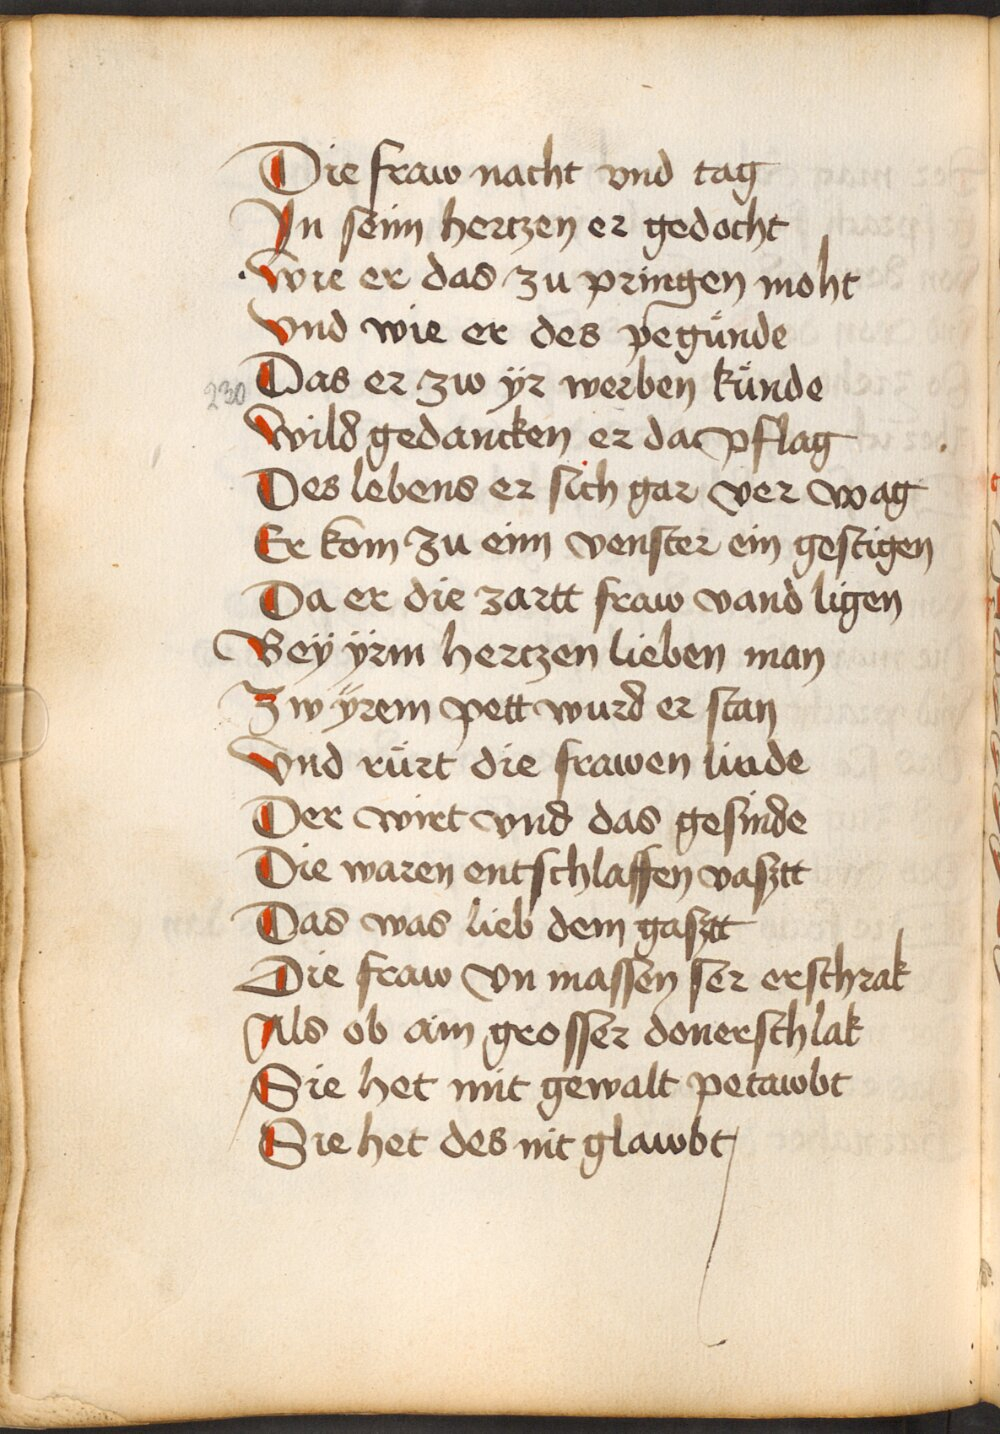 Die fraw nacht vnd tag
In seim hertzen er gedocht
Wie er das zu pringen moht
Vnd wie er des pegünde
230 Das er zw ÿr werben künde
Wild gedancken er da pflag
Des lebens er sich gar ver wag
Er kom zu eim venster ein gestigen
Da er die zartt fraw vand ligen
Beÿ ÿrm hertzen lieben man
Zw ÿrem pett wurd er stan
Vnd rürt die frawen linde
Der wirt vnd das gesinde
Die waren entschlaffen vasztt
Das was lieb dem gasztt
Die fraw vn massen ser erschrak
Als ob aim grosser donerschlak
Sie het mit gewalt petawbt
Sie het des nit glawbt